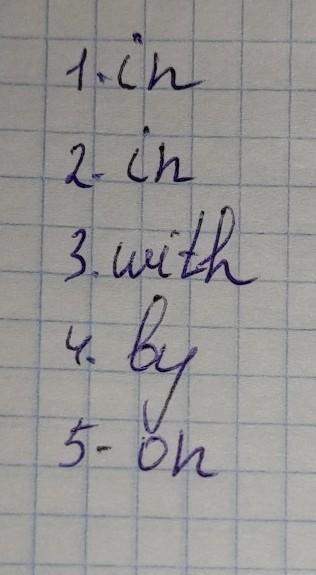 1. in
2. in
3. with
4. by
5- on